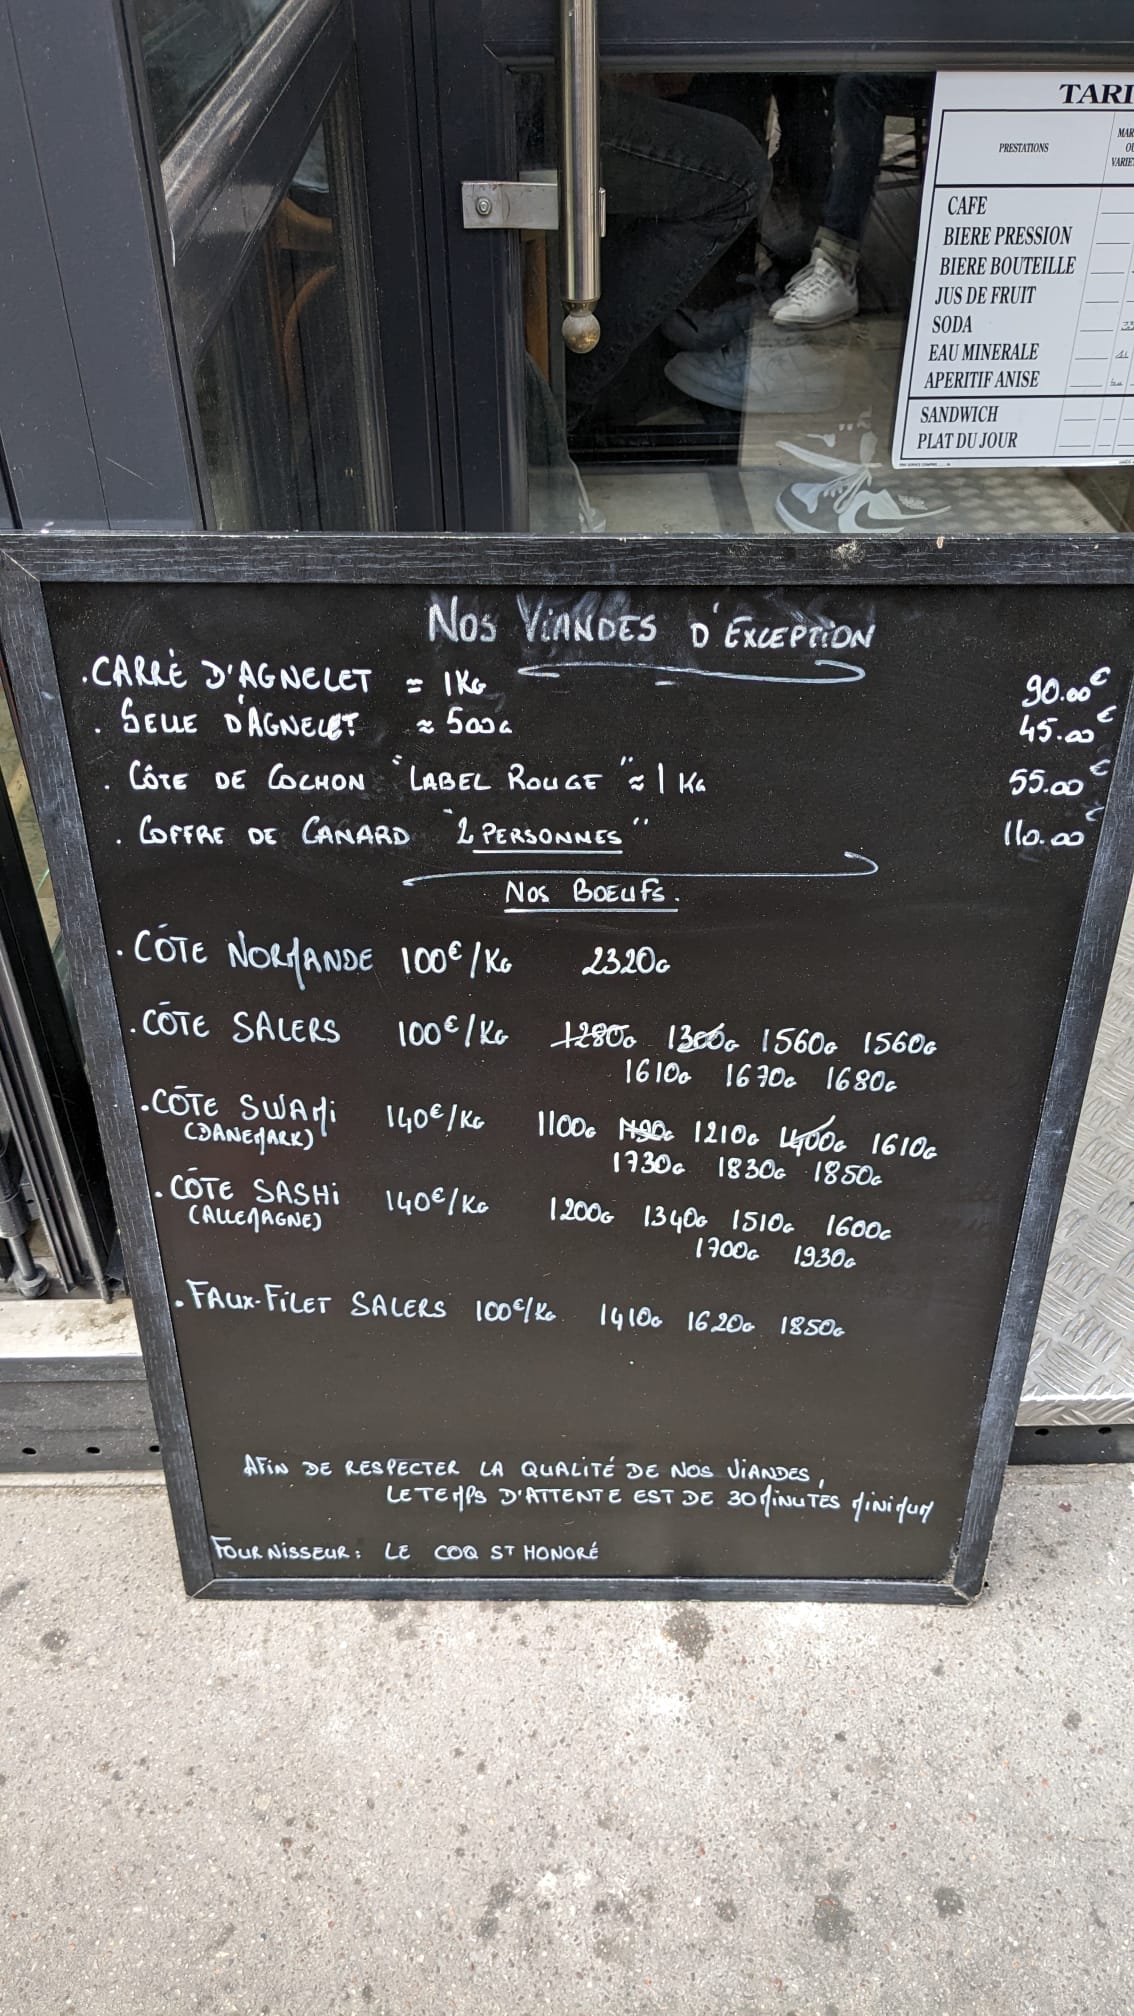 TARI
PRESTATIONS
CAFE
BIERE PRESSION
BIERE BOUTEILLE
JUS DE FRUIT
SODA
EAU MINERALE
APERITIF ANISE
SANDWICH
PLAT DU JOUR
NOS VIANDES D'EXCEPTION
.CARRÉ D'AGNELET = 1KG 90.00€
. SELLE D'AGNELET ≈ 500G 45.00€
. CÔTE DE COCHON "LABEL ROUGE" ≈ 1 KG 55.00€
. COFFRE DE CANARD "2 PERSONNES" 110.00€
NOS BOEUFS.
. CÔTE NORMANDE 100€/KG 2320G
. CÔTE SALERS 100€/KG 1280G 1300G 1560G 1560G
1610G 1670G 1680G
. CÔTE SWAMI 140€/KG 1100G 1210G 1400G 1610G
(DANEMARK) 1730G 1830G 1850G
. CÔTE SASHI 140€/KG 1200G 1340G 1510G 1600G
(ALLEMAGNE) 1700G 1930G
. FAUX-FILET SALERS 100€/KG 1410G 1620G 1850G
AFIN DE RESPECTER LA QUALITÉ DE NOS VIANDES,
LE TEMPS D'ATTENTE EST DE 30 MINUTES MINIMUM
FOURNISSEUR: LE COQ ST HONORÉ